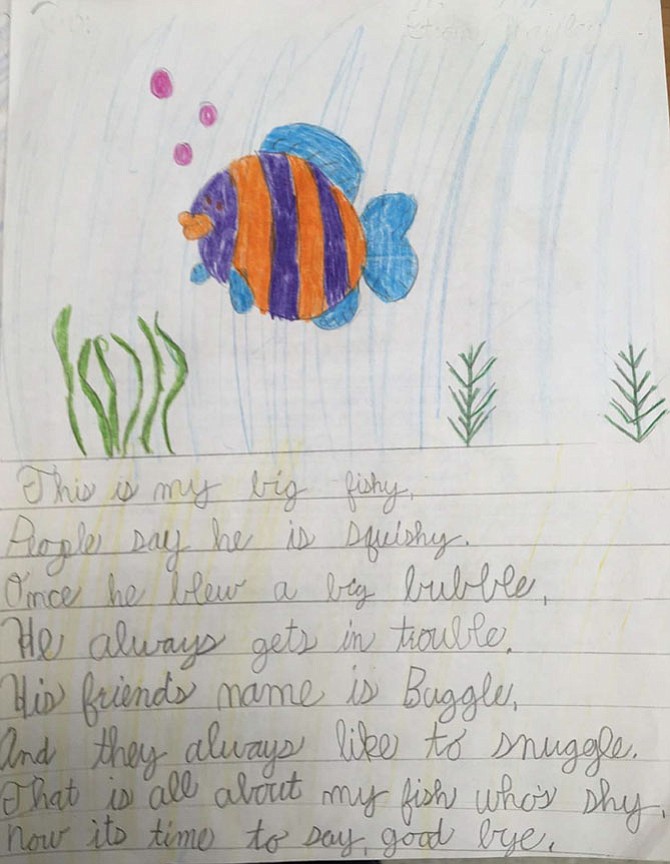 This is my big fishy,
People say he is squishy.
Once he blew a big bubble,
He always gets in trouble.
His friends name is Buggle,
And they always like to snuggle.
That is all about my fish who's shy,
now its time to say good bye.